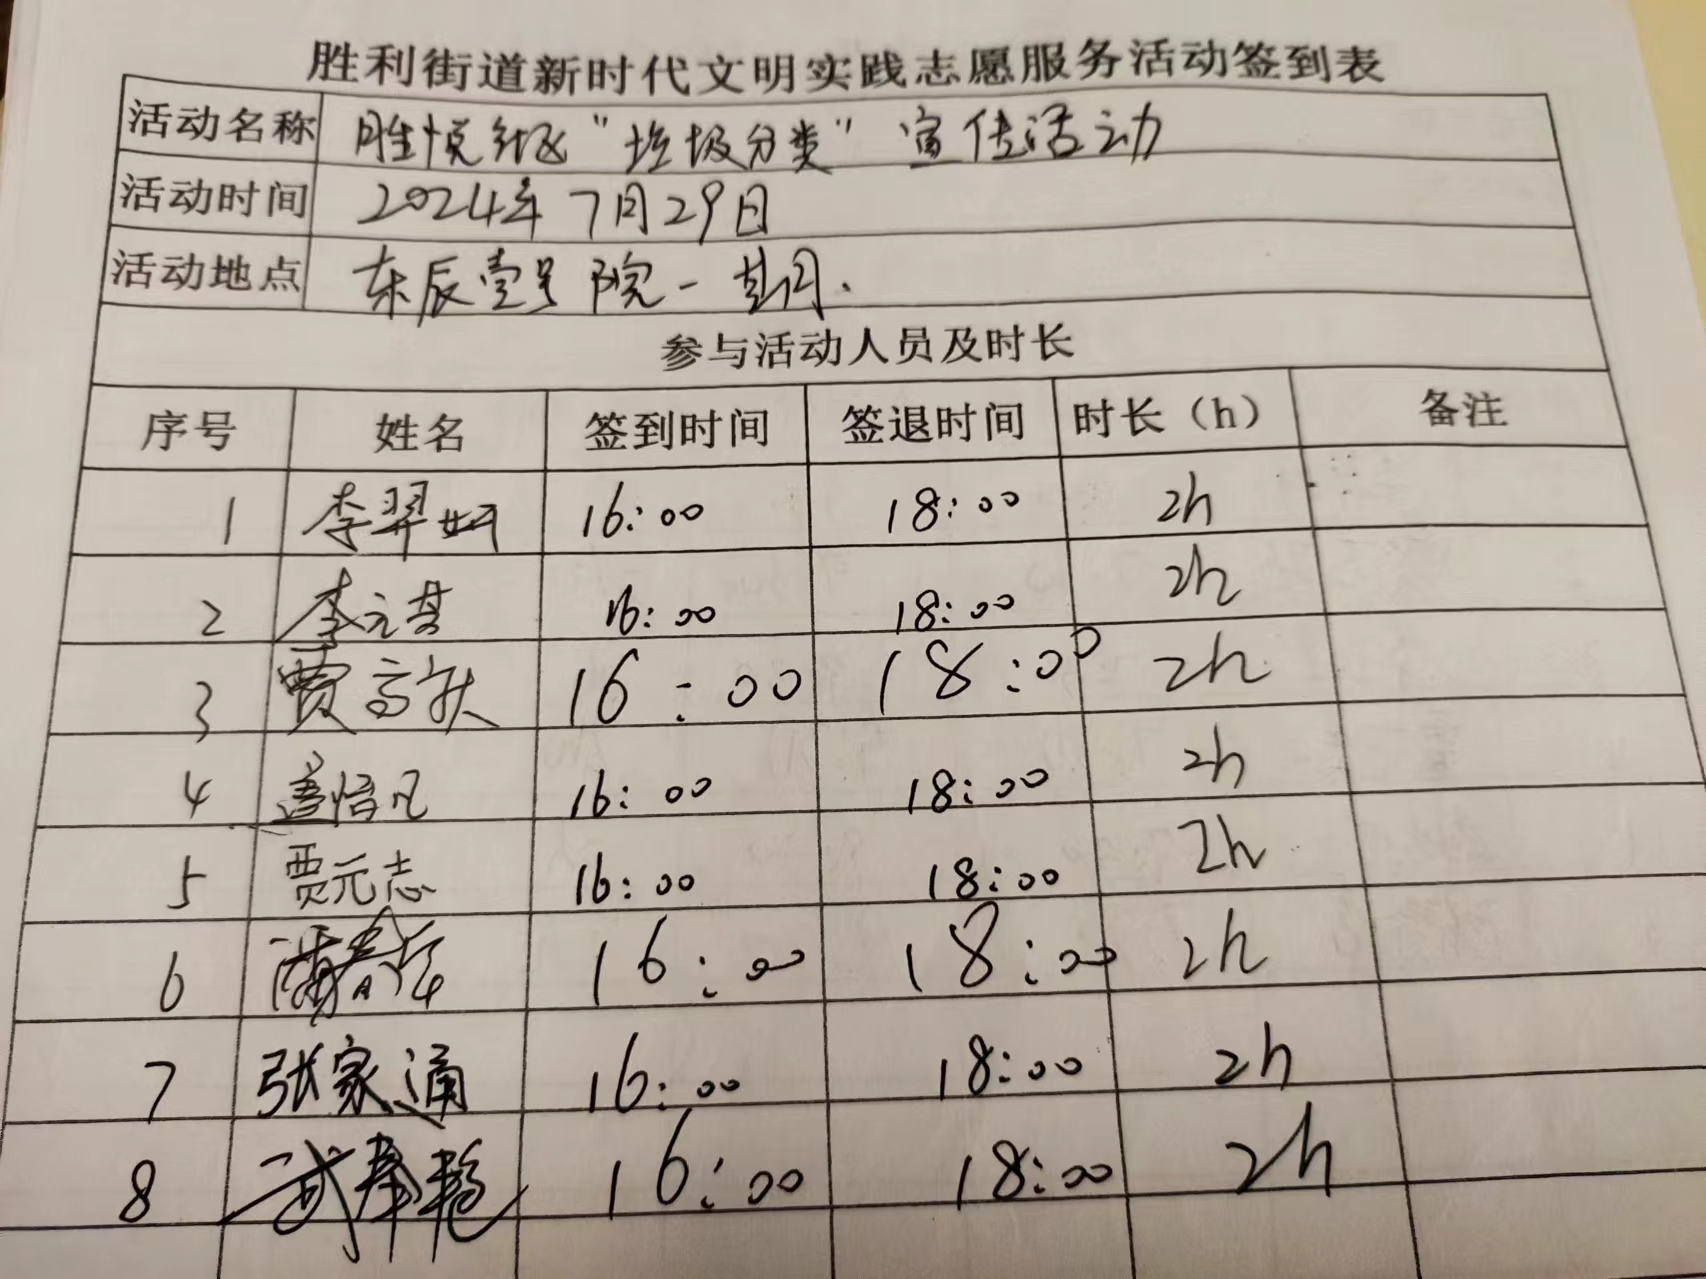 胜利街道新时代文明实践志愿服务活动签到表
活动名称 胜悦社区“垃圾分类”宣传活动
活动时间 2024年7月29日
活动地点 东辰壹号院一期.
参与活动人员及时长
序号 姓名 签到时间 签退时间 时长（h） 备注
1 李羿 16:00 18:00 2h
2 李元芸 16:00 18:00 2h
3 贾高 16:00 18:00 2h
4 凡 16:00 18:00 2h
5 贾元志 16:00 18:00 2h
6 16:00 18:00 2h
7 张家通 16:00 18:00 2h
8 武春艳 16:00 18:00 2h